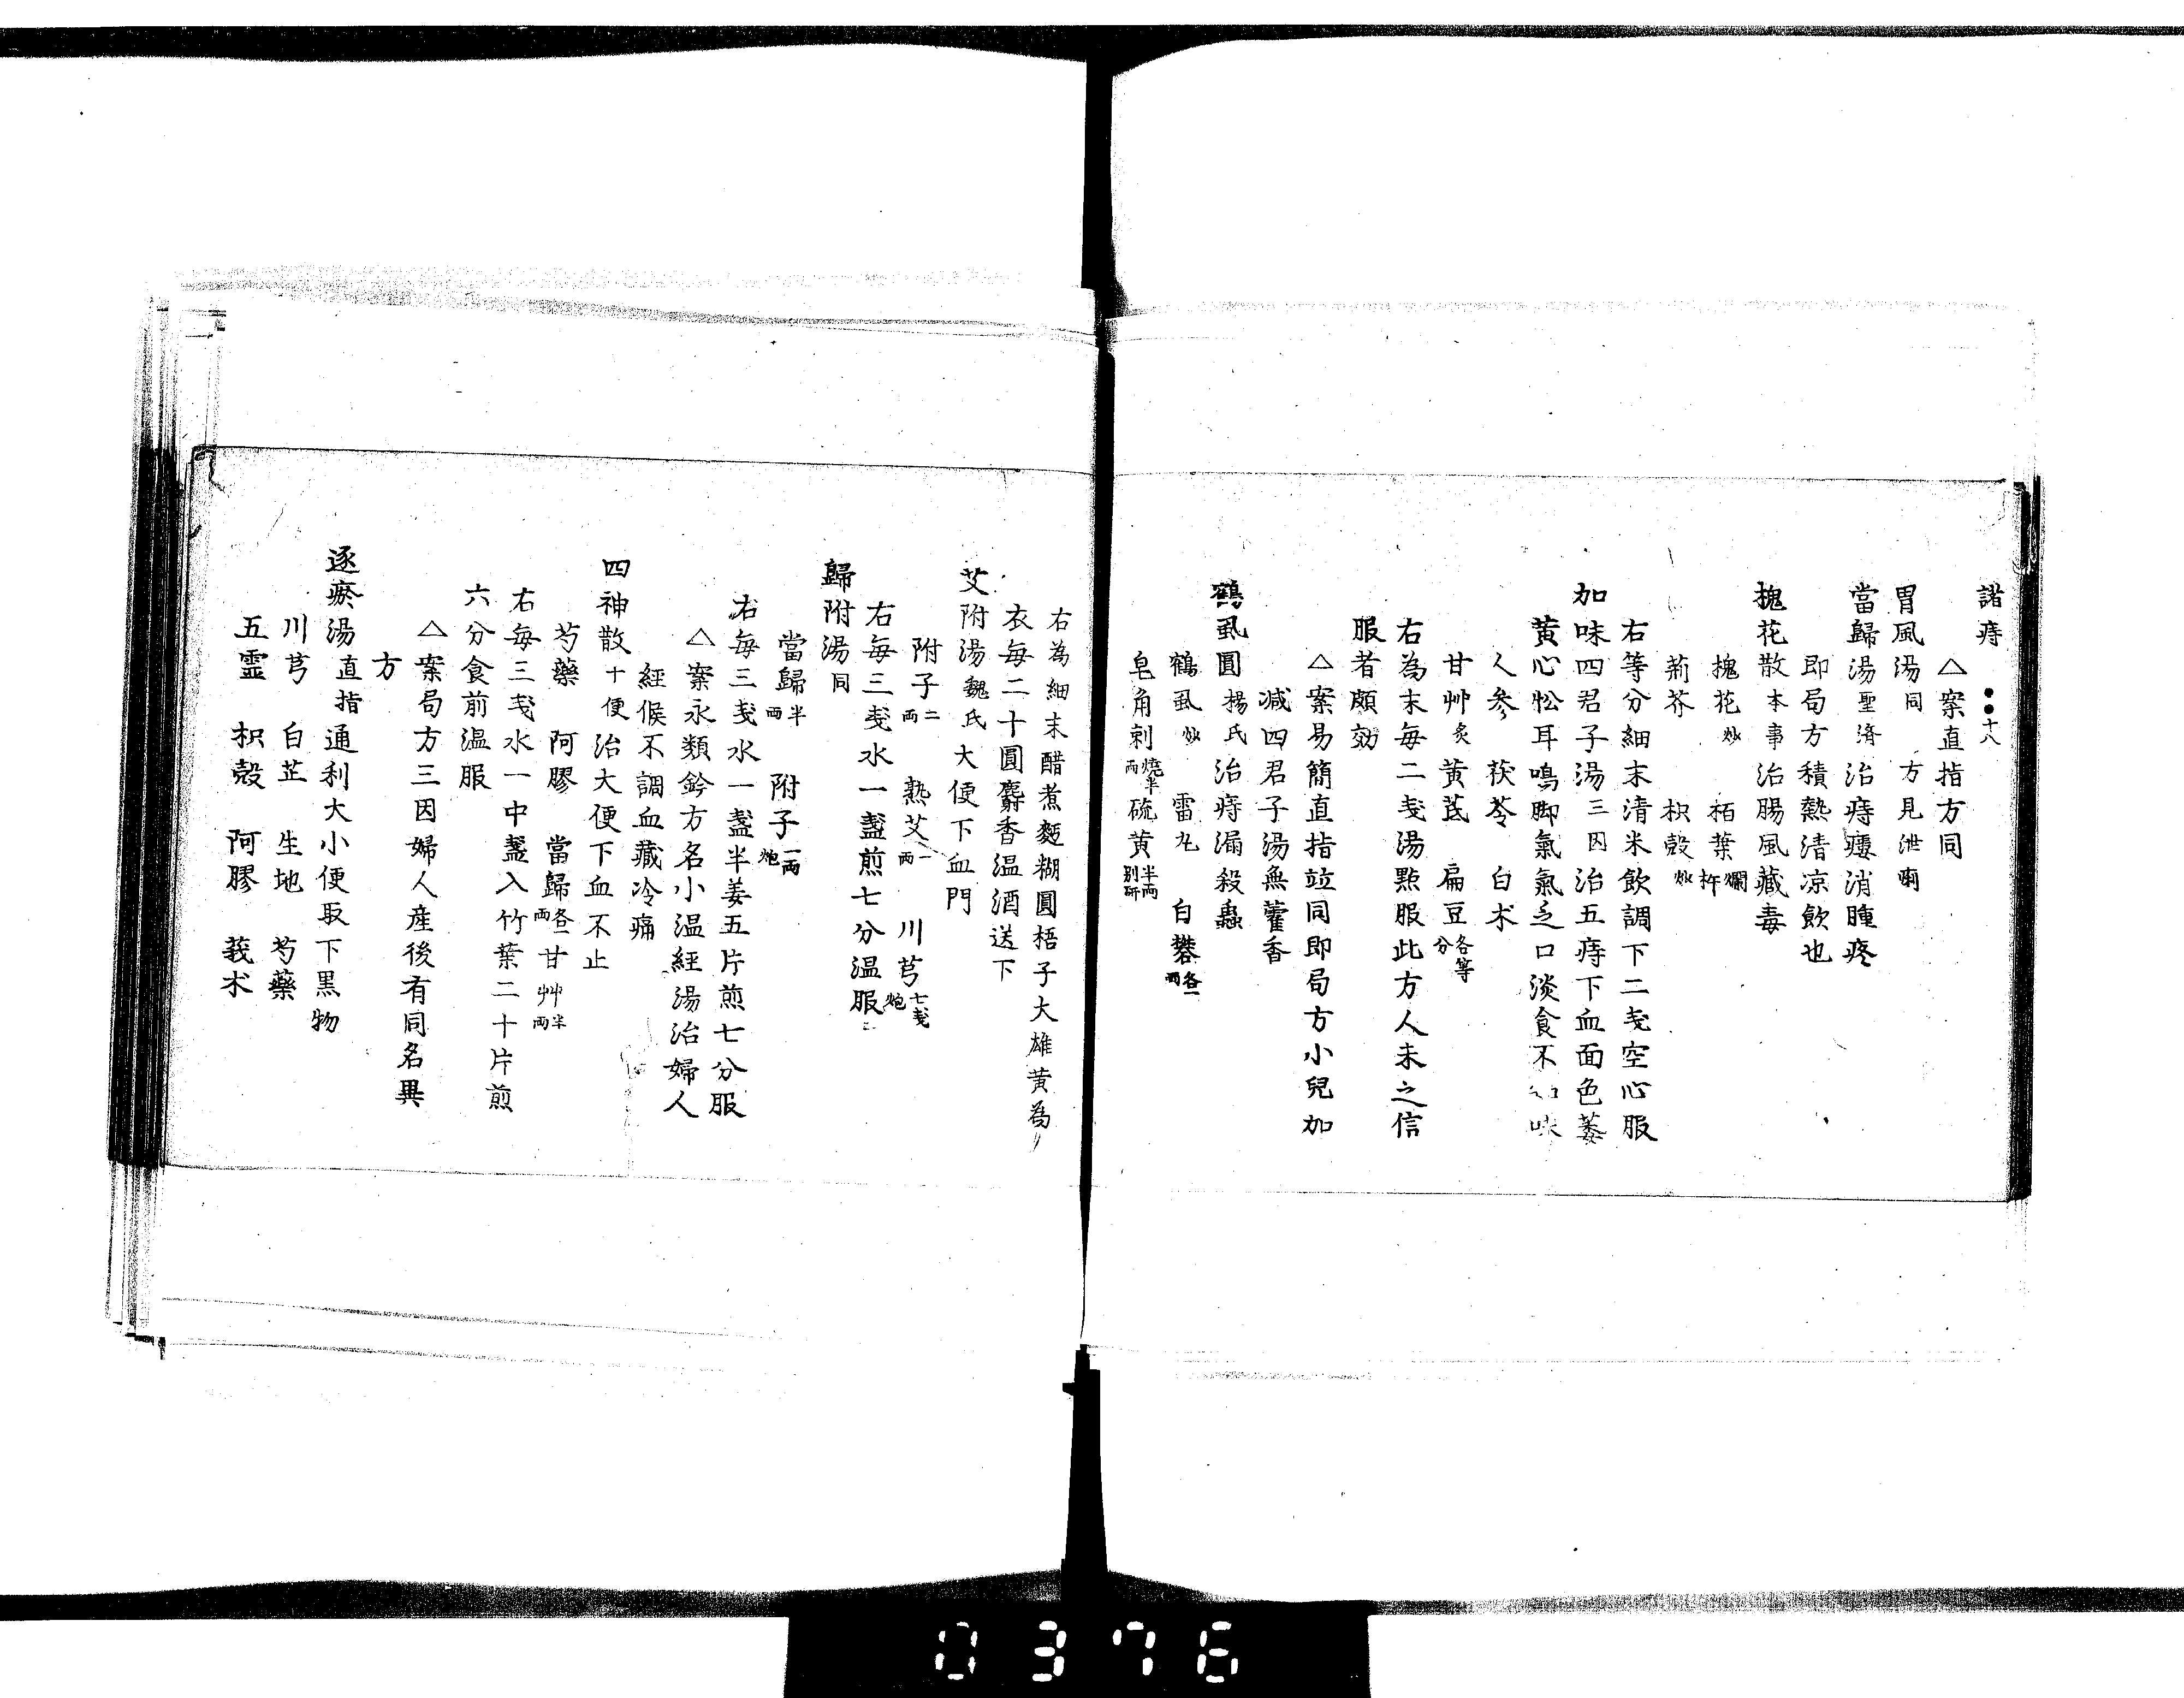 諸痔 ●●十八
△案直指方同
胃風湯同 方見泄痢
當歸湯聖済治痔瘻消腫疼
即局方積熱清凉飲也
槐花散本事治腸風藏毒
槐花炒 栢葉爛杵
荊芥 枳殼炒
右等分細末清米飲調下二戔空心服
加味四君子湯三因治五痔下血面色萎
黄心忪耳鳴脚氣氣乏口淡食不知味
人参 茯苓 白朮
甘艸炙 黄芪 扁豆各等分
右為末每二戔湯㸃服此方人未之信
服者頗効
△案易簡直指竝同即局方小兒加
減四君子湯無藿香
鶴虱圓楊氏治痔漏殺蟲
鶴虱炒 雷丸 白礬各一兩
皂角刺燒半兩 硫黄半兩別研
右為細末醋煮麪糊圓梧子大雄黄為
衣每二十圓麝香温酒送下
艾附湯魏氏大便下血門
附子二兩 熟艾一兩 川芎七戔炮
右每三戔水一盞煎七分温服
歸附湯同
當歸半兩 附子一兩炮
右每三戔水一盞半姜五片煎七分服
△案永類鈐方名小温経湯治婦人
經候不調血藏冷痛
四神散十便治大便下血不止
芍藥 阿膠 當歸各一兩 甘艸半兩
右每三戔水一中盞入竹葉二十片煎
六分食前温服
△案局方三因婦人産後有同名異
方
逐瘀湯直指通利大小便取下黒物
川芎 白芷 生地 芍藥
五霊 枳殼 阿膠 莪朮
0376